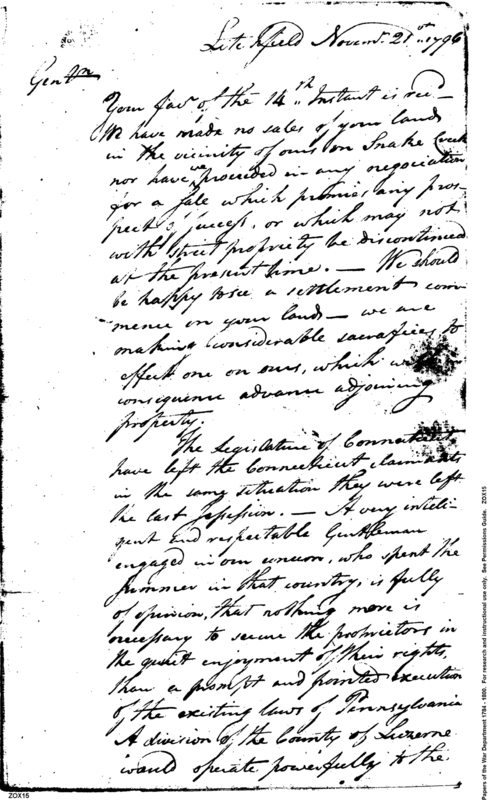 Litchfield Novemr. 21st 1796
Gentn
Your favr. of the 14th Instant is recd—
We have made no sales of your lands
in the vicinity of ours on Snake Creek
nor have we proceeded in any negociation
for a sale which promises any pros-
pect of success, or which may not
with strict propriety be discontinued
at the present time. — We should
be happy to see a settlement com-
mence on your lands — we are
making considerable sacrafices to
effect one on ours, which will in
consequence advance adjoining
property.
The Legislature of Connecticut
have left the Connecticut claimants
in the same situation they were left
the last session. — A very inteli-
gent and respectable Gentleman
engaged in our concern, who spent the
summer in that country, is fully
of opinion, that nothing more is
necessary to secure the proprietors in
the quiet enjoyment of their rights,
than a prompt and pointed execution
of the existing laws of Pennsylvania
A division of the County of Luzerne
would operate powerfully to the
ZOX15
Papers of the War Department 1784 - 1800. For research and instructional use only. See Permissions Guide. ZOX15